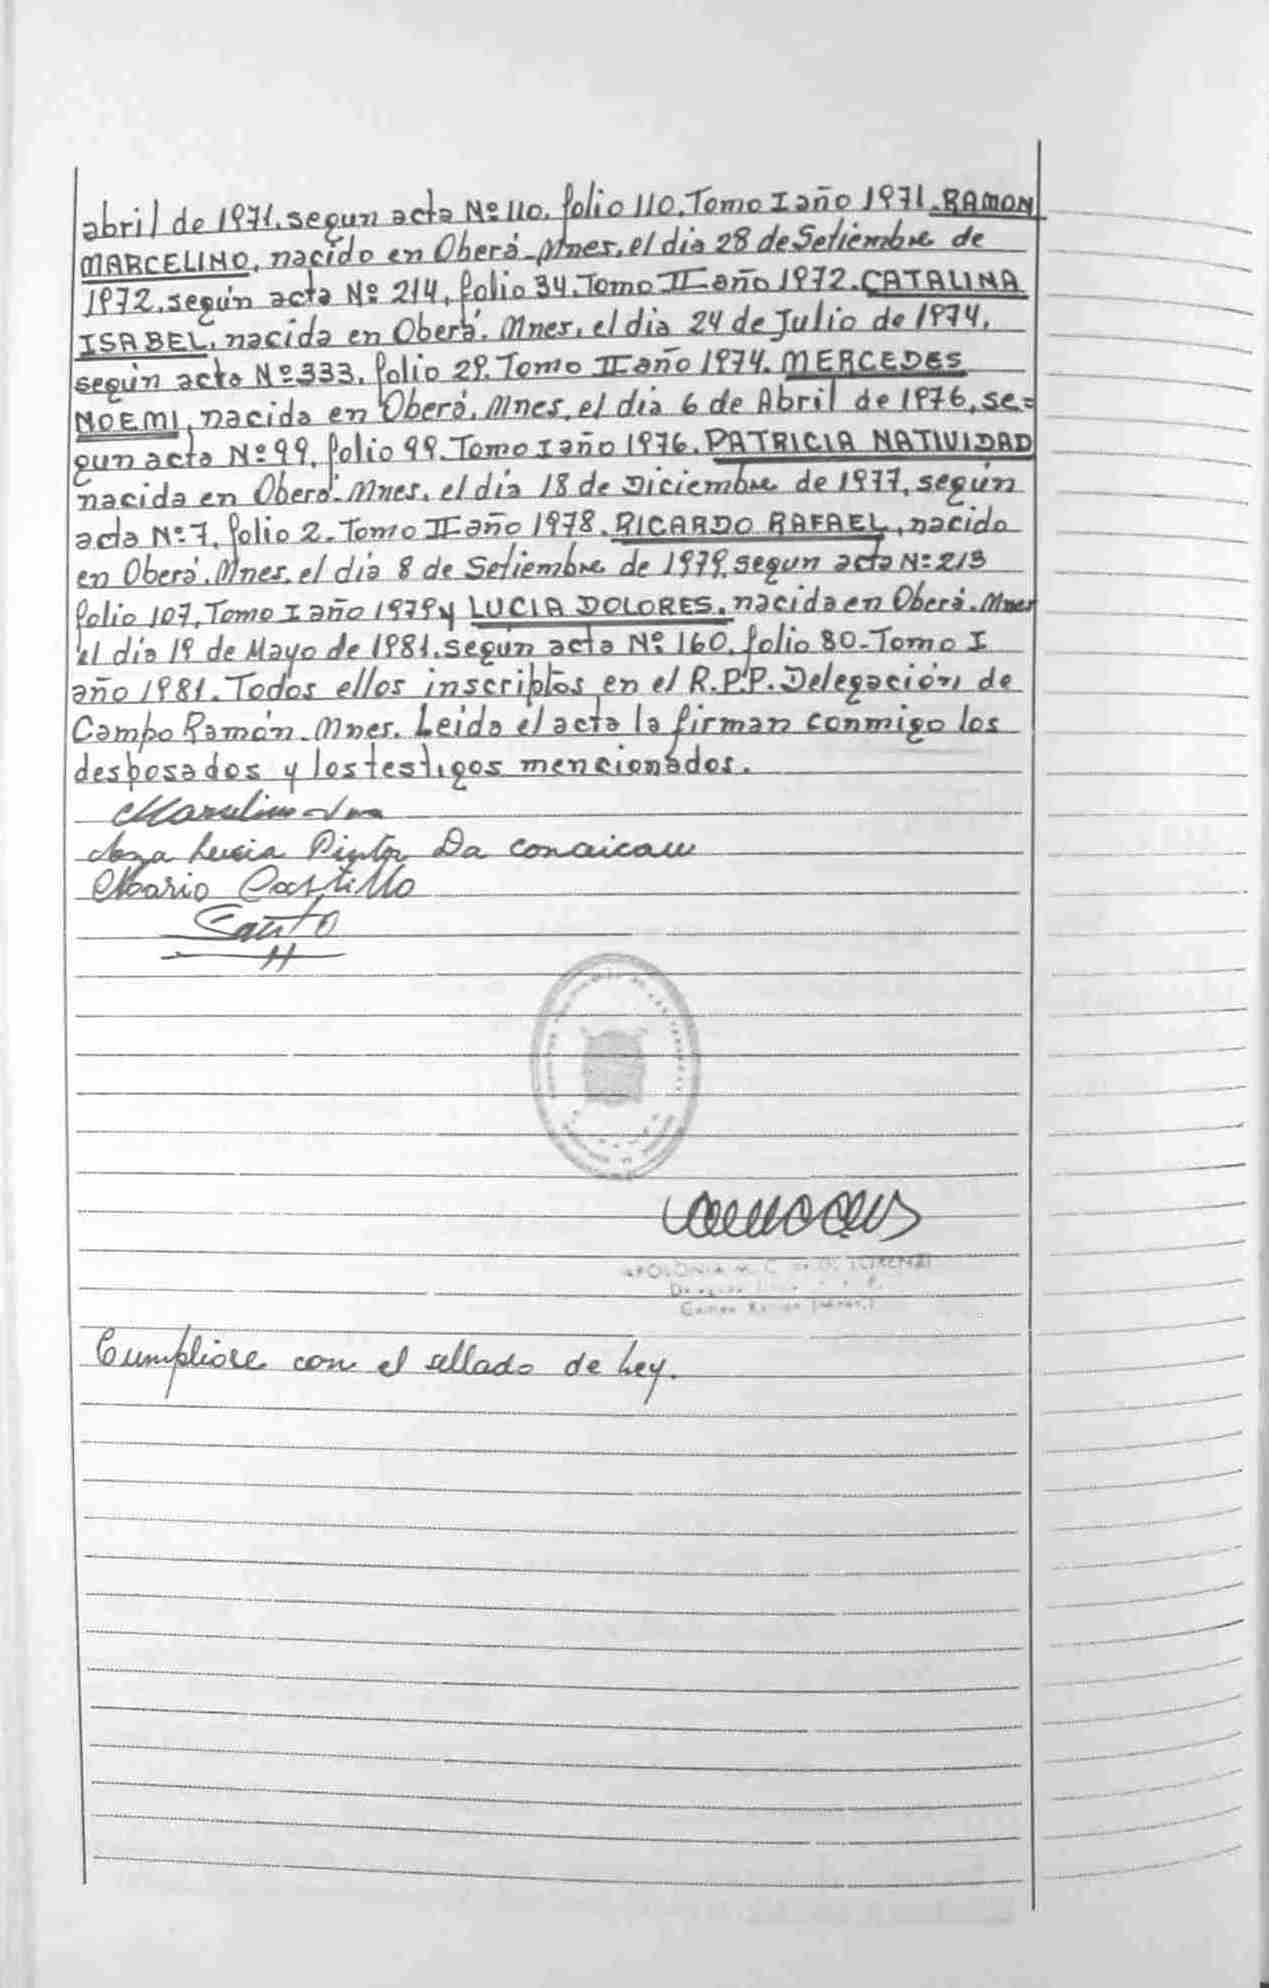 abril de 1971, segun acta Nº 110, folio 110, Tomo I año 1971. RAMON
MARCELINO, nacido en Oberá-Mnes, el dia 28 de Setiembre de
1972, según acta Nº 214, folio 34, Tomo II año 1972. CATALINA
ISABEL, nacida en Oberá. Mnes, el dia 24 de Julio de 1974,
según acta Nº 333, folio 29. Tomo II año 1974. MERCEDES
NOEMI, nacida en Oberá. Mnes, el dia 6 de Abril de 1976, se=
gun acta Nº 99, folio 99. Tomo I año 1976. PATRICIA NATIVIDAD
nacida en Oberá-Mnes, el dia 18 de Diciembre de 1977, según
acta Nº 7, folio 2. Tomo II año 1978. RICARDO RAFAEL, nacido
en Oberá. Mnes, el dia 8 de Setiembre de 1979, segun acta Nº 213
folio 107, Tomo I año 1979 y LUCIA DOLORES, nacida en Oberá. Mnes
el dia 19 de Mayo de 1981, según acta Nº 160, folio 80-Tomo I
año 1981. Todos ellos inscriptos en el R.P.P. Delegación de
Campo Ramón-Mnes. Leida el acta la firman conmigo los
desposados y los testigos mencionados.
Lucia Da
Mario Castillo
Cumpliose con el sellado de Ley.